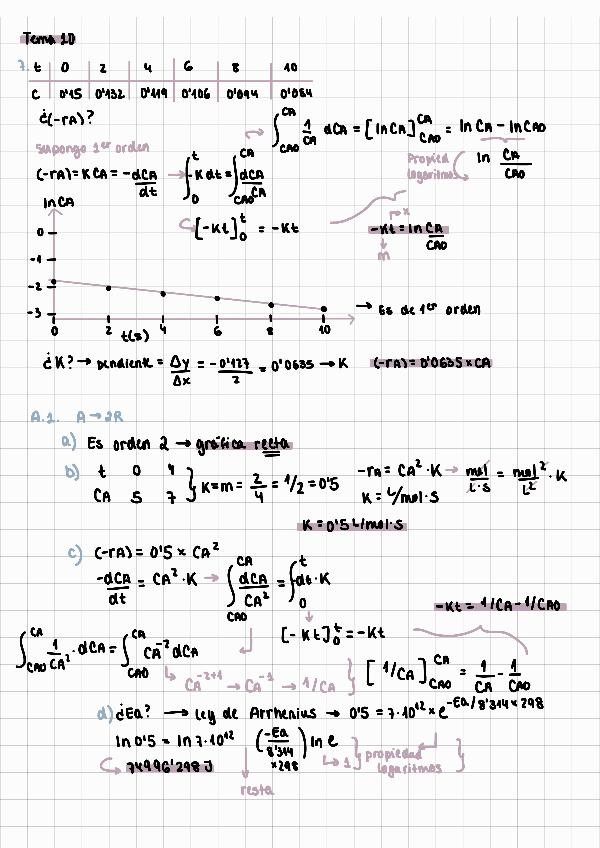 Tema 10
7. t 0 2 4 6 8 10
C 0'15 0'132 0'119 0'106 0'094 0'084
¿(-rA)?
∫CA0^CA 1/CA dCA = [lnCA]CA0^CA = lnCA - lnCA0
Supongo 1er orden
Propied logaritmos ln CA/CA0
(-rA) = K CA = -dCA/dt → ∫0^t -Kdt = ∫CA0^CA dCA/CA
lnCA
[-Kt]0^t = -Kt
-Kt = ln CA/CA0
x
m
0
-1
-2
-3
0 2 4 6 8 10
t(s)
→ Es de 1er orden
¿K? → pendiente = Δy/Δx = -0'127/2 = 0'0635 → K (-rA) = 0'0635 × CA
A.1. A → 2R
a) Es orden 2 → gráfica recta
b) t 0 4
CA 5 7
K = m = 2/4 = 1/2 = 0'5
-rA = CA² · K → mol/L·s = mol²/L² · K
K = L/mol·s
K = 0'5 L/mol·s
c) (-rA) = 0'5 × CA²
-dCA/dt = CA² · K → ∫CA0^CA dCA/CA² = ∫0^t dt · K
-Kt = 1/CA - 1/CA0
[-Kt]0^t = -Kt
∫CA0^CA 1/CA² · dCA = ∫CA0^CA CA^-2 dCA
CA^-2+1 → CA^-1 → 1/CA
[1/CA]CA0^CA = 1/CA - 1/CA0
d) ¿Ea? → Ley de Arrhenius → 0'5 = 7·10^12 × e^-Ea/8'314×298
ln 0'5 = ln 7·10^12 (-Ea/8'314×298) ln e
1
propiedad logaritmos
74996'298 J
resta